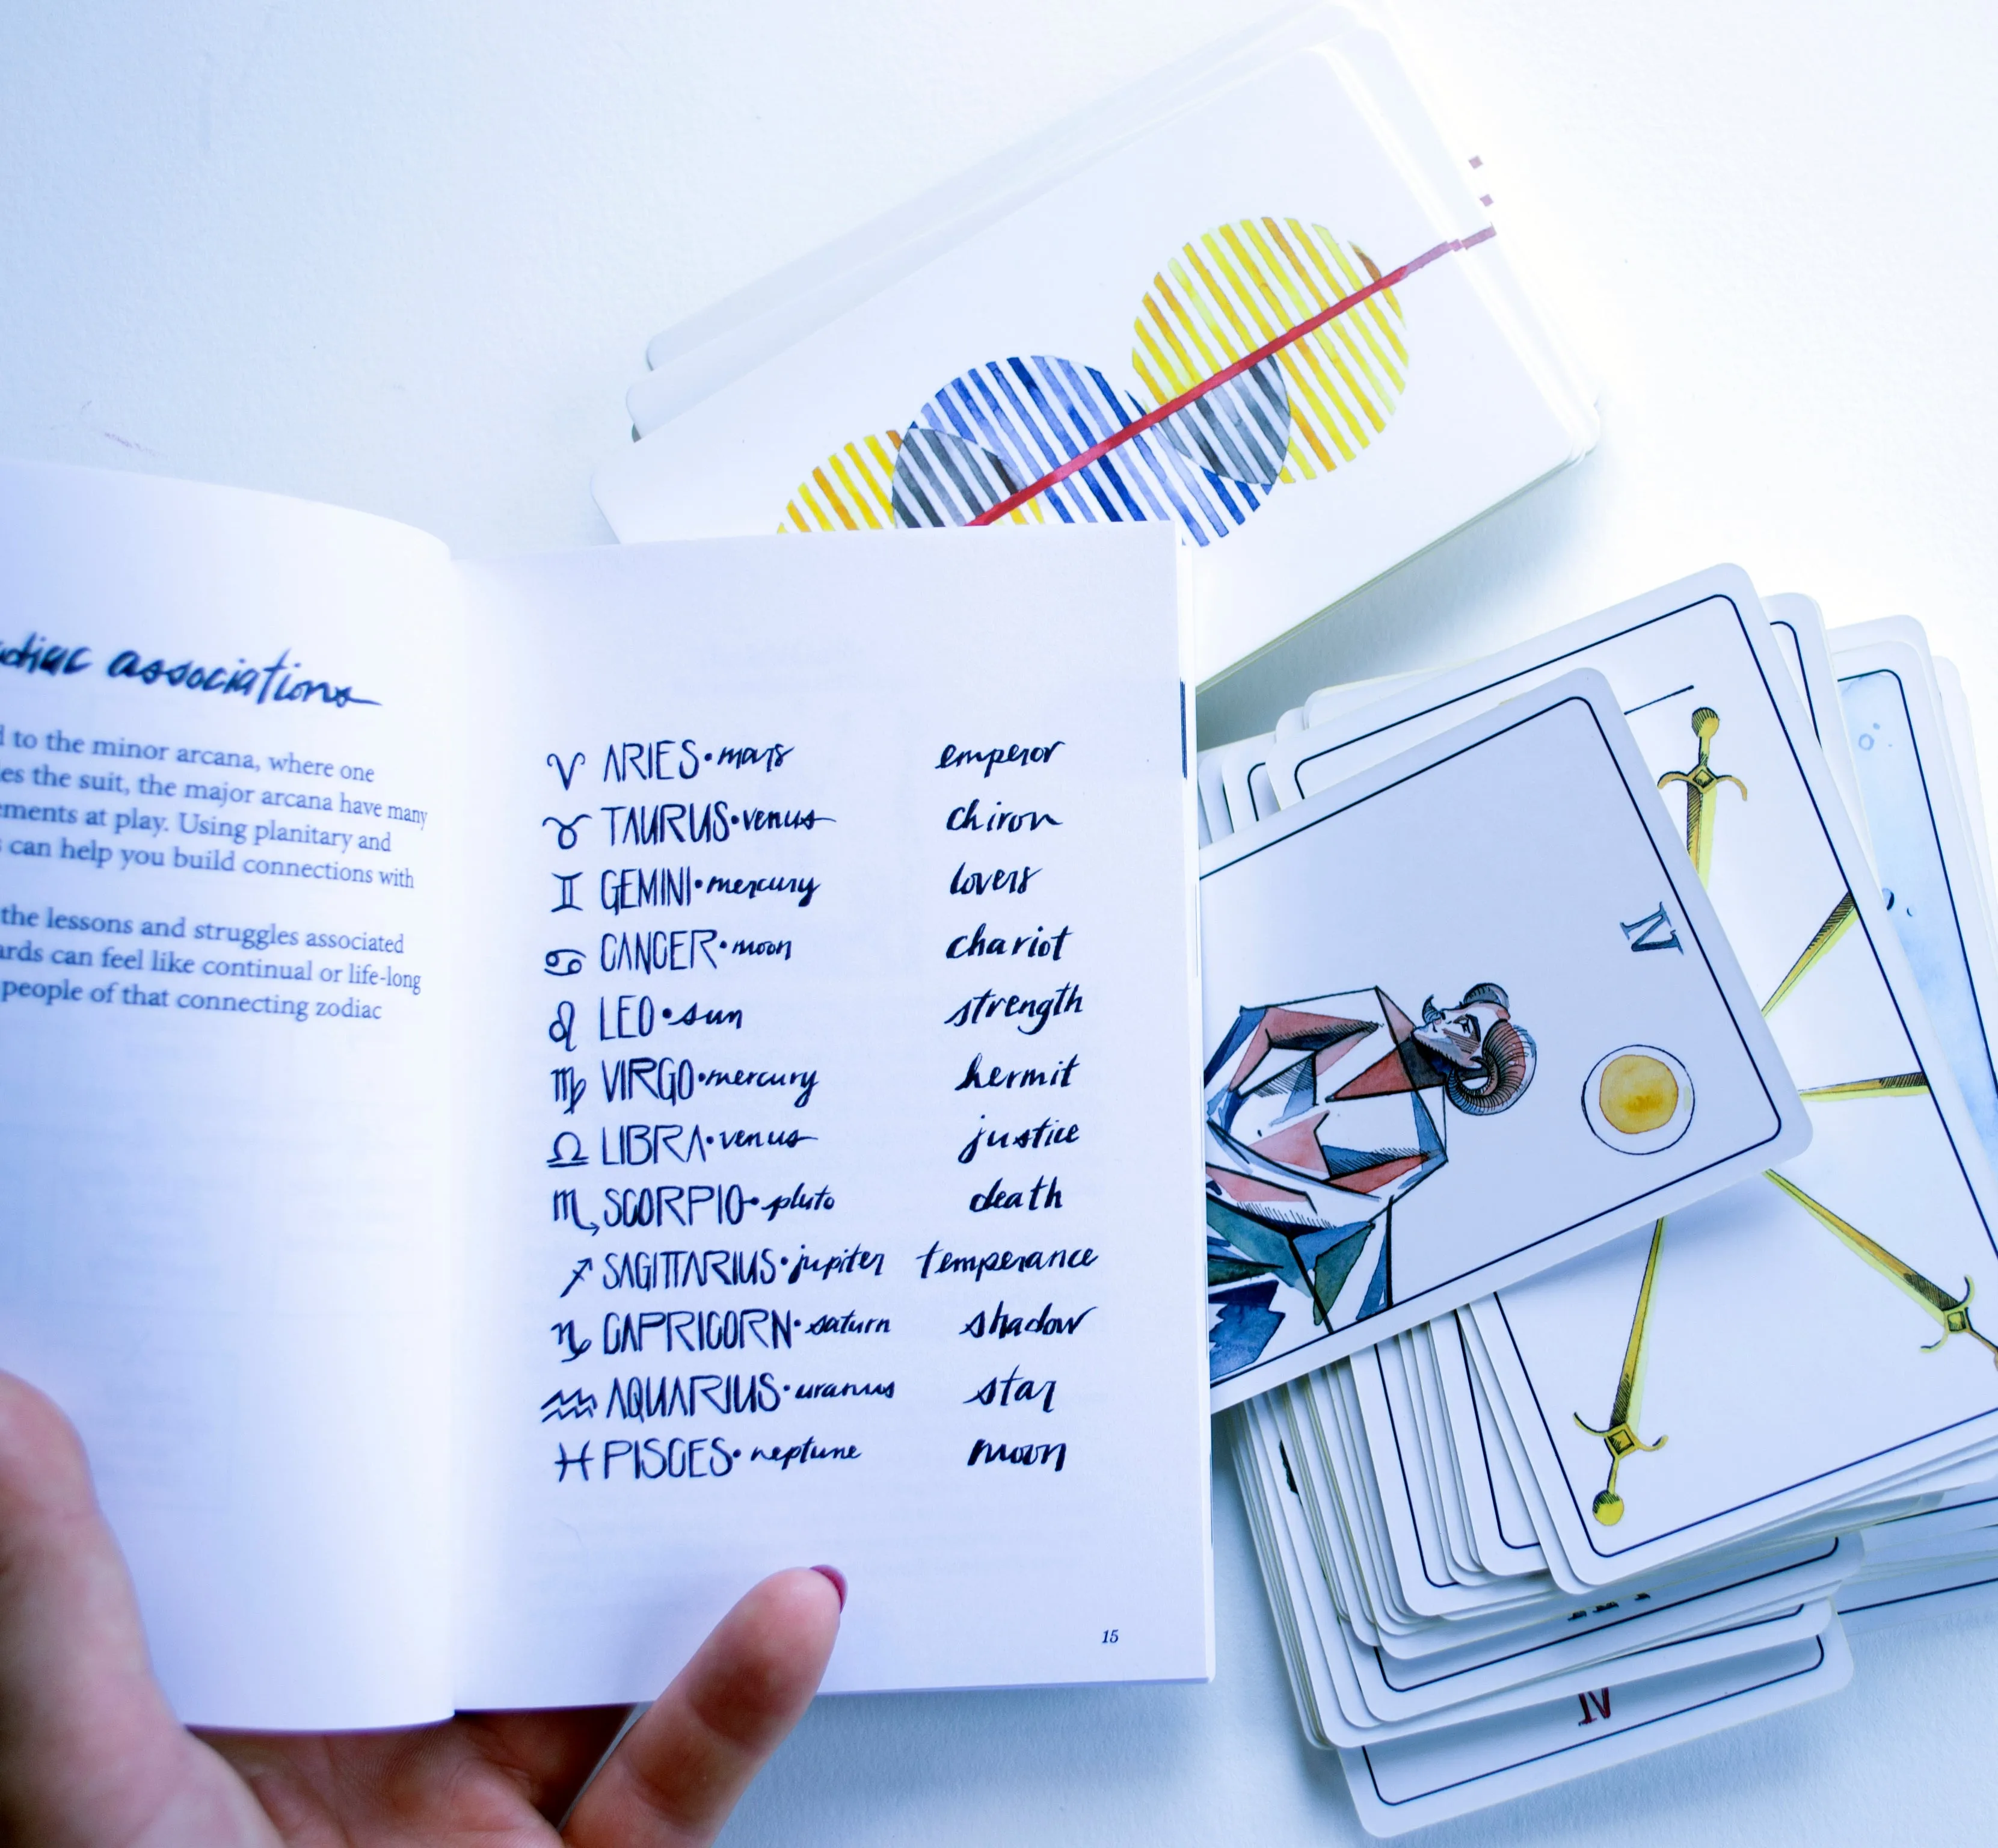 associations
to the minor arcana, where one
the suit, the major arcana have many
at play. Using planitary and
can help you build connections with
the lessons and struggles associated
can feel like continual or life-long
people of that connecting zodiac
♈ ARIES • mars emperor
♉ TAURUS • venus chiron
♊ GEMINI • mercury lovers
♋ CANCER • moon chariot
♌ LEO • sun strength
♍ VIRGO • mercury hermit
♎ LIBRA • venus justice
♏ SCORPIO • pluto death
♐ SAGITTARIUS • jupiter temperance
♑ CAPRICORN • saturn shadow
♒ AQUARIUS • uranus star
♓ PISCES • neptune moon
15
IV